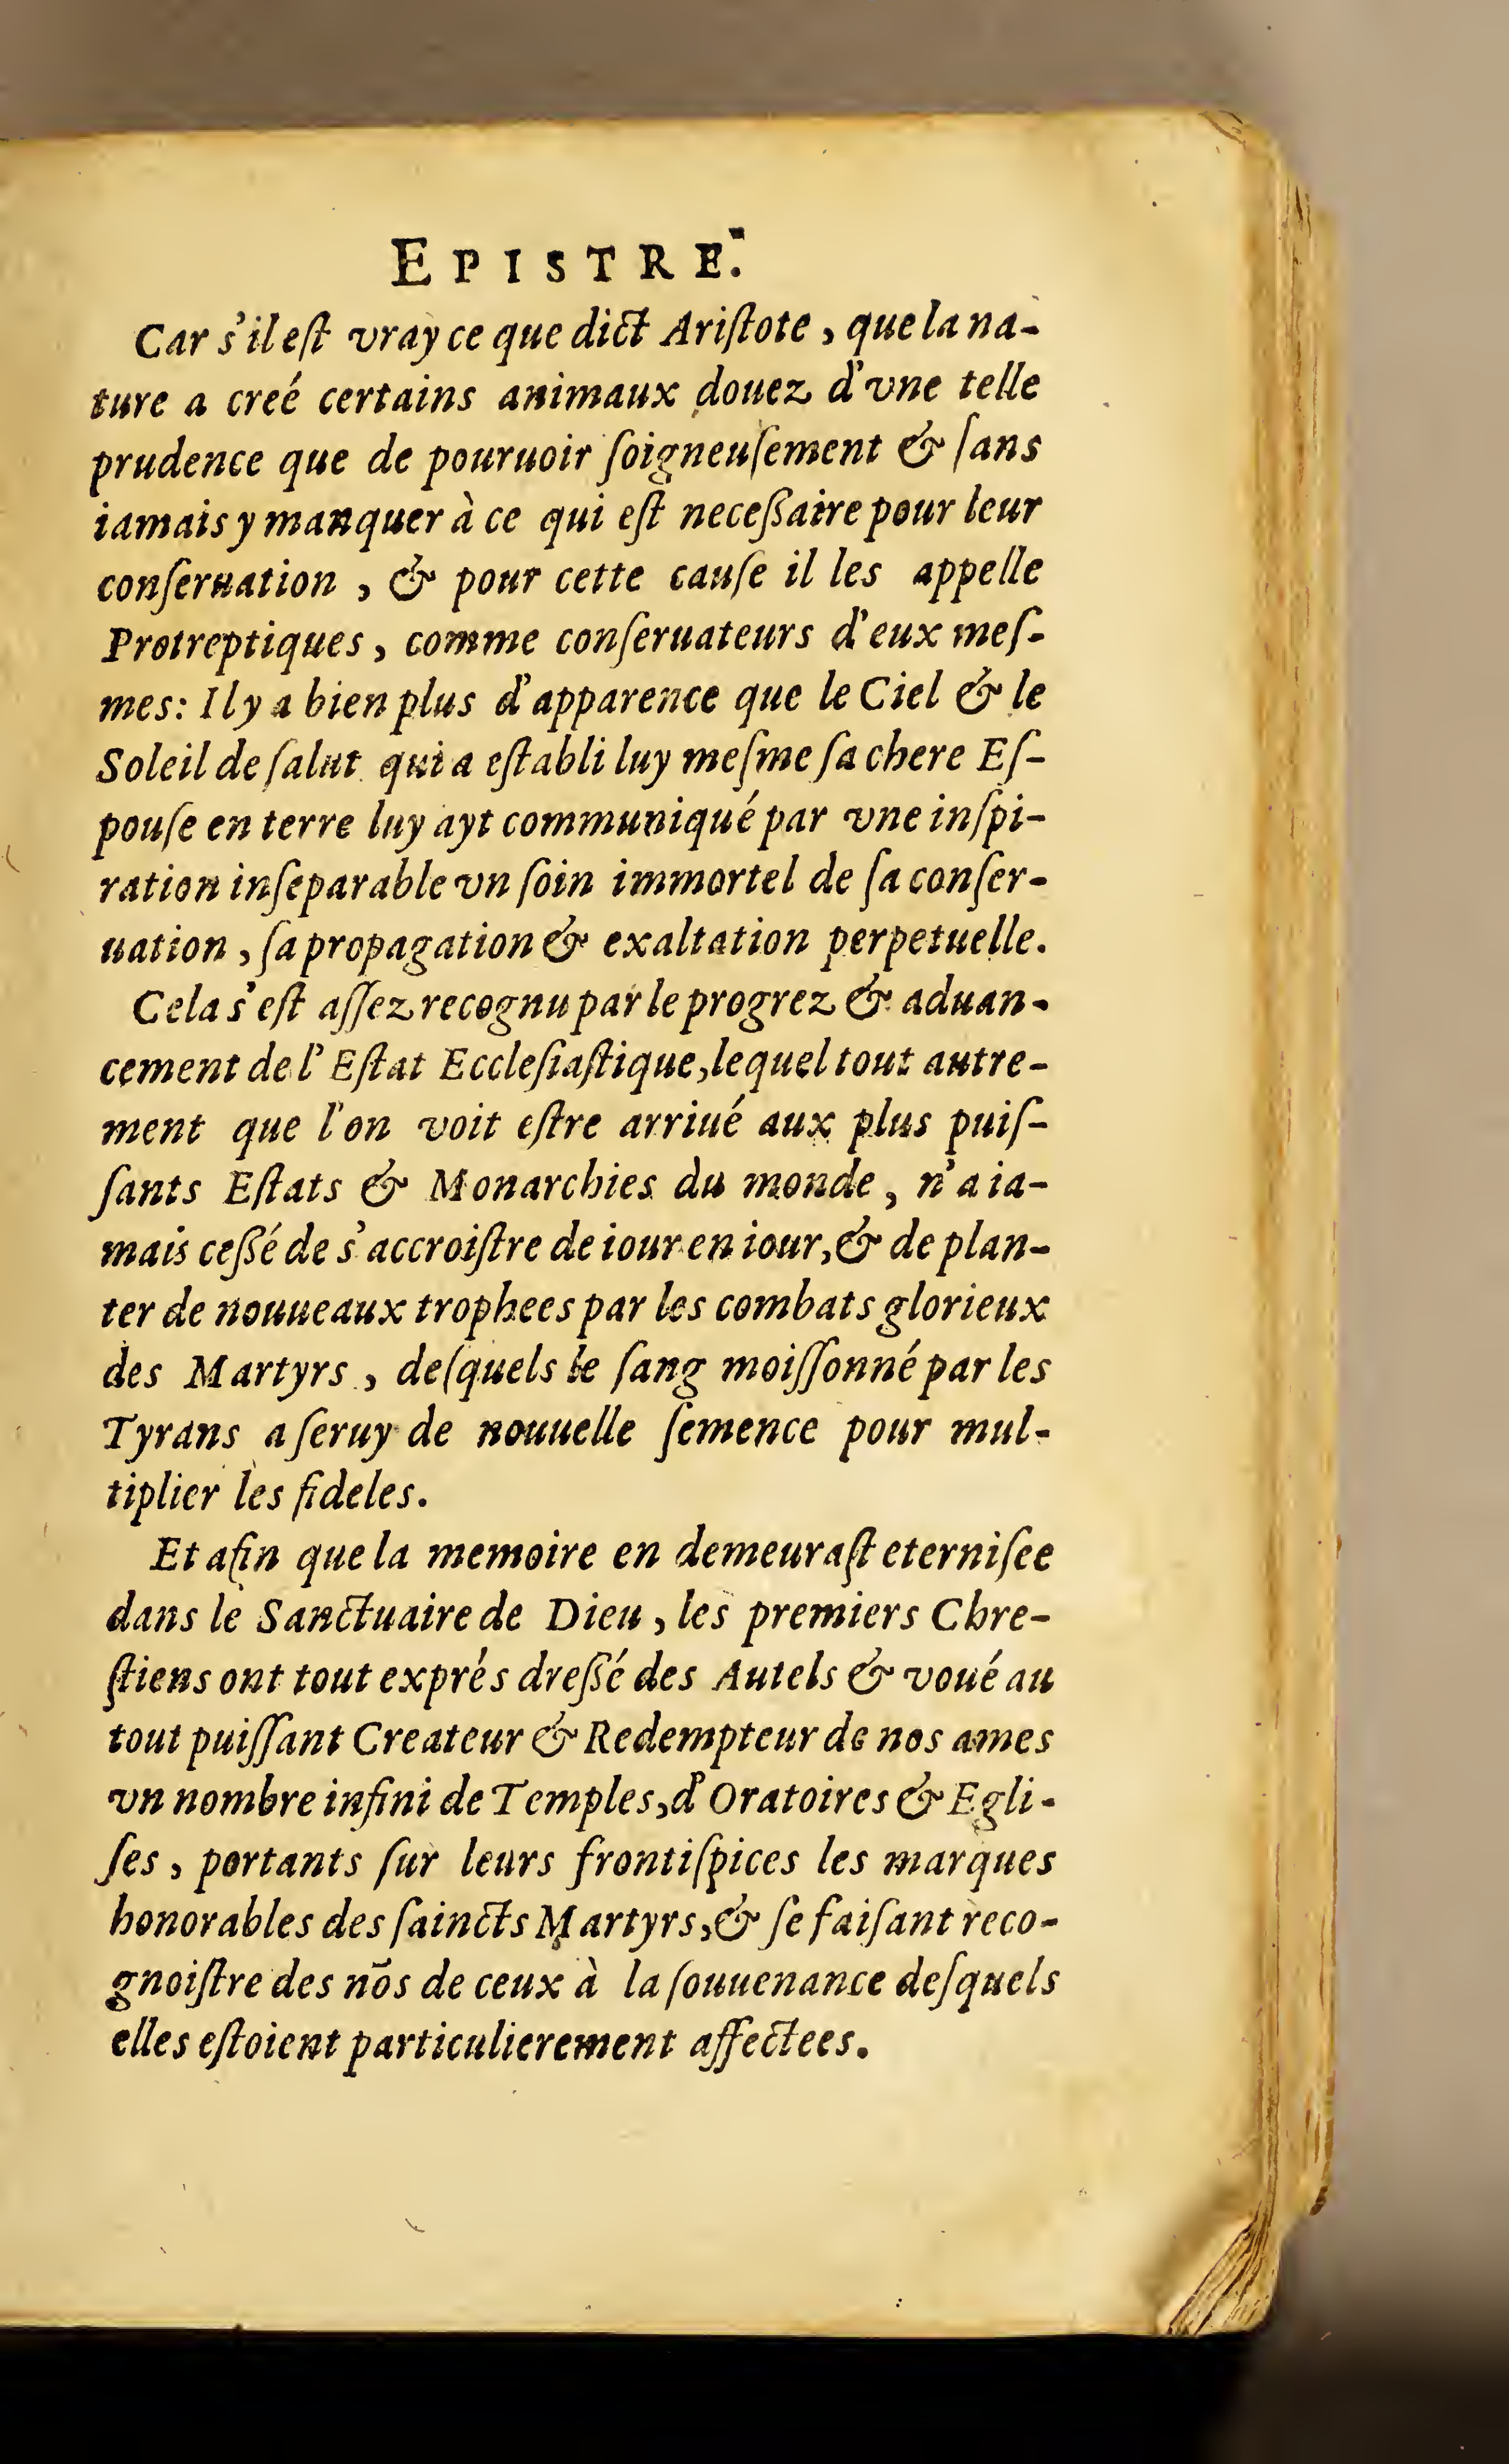 EPISTRE.
Car s'il eſt vray ce que dict Ariſtote, que la na-
ture a creé certains animaux douez d'vne telle
prudence que de pouruoir ſoigneuſement & ſans
iamais y manquer à ce qui eſt neceſſaire pour leur
conſeruation, & pour cette cauſe il les appelle
Protreptiques, comme conſeruateurs d'eux meſ-
mes: Il y a bien plus d'apparence que le Ciel & le
Soleil de ſalut qui a eſtabli luy meſme ſa chere Eſ-
pouſe en terre luy ayt communiqué par vne inſpi-
ration inſeparable vn ſoin immortel de ſa conſer-
uation, ſa propagation & exaltation perpetuelle.
Cela s'eſt aſſez recognu par le progrez & aduan-
cement de l'Eſtat Eccleſiaſtique, lequel tout autre-
ment que l'on voit eſtre arriué aux plus puiſ-
ſants Eſtats & Monarchies du monde, n'a ia-
mais ceſſé de s'accroiſtre de iour en iour, & de plan-
ter de nouueaux trophees par les combats glorieux
des Martyrs, deſquels le ſang moiſſonné par les
Tyrans a ſeruy de nouuelle ſemence pour mul-
tiplier les fideles.
Et afin que la memoire en demeuraſt eterniſee
dans le Sanctuaire de Dieu, les premiers Chre-
ſtiens ont tout exprés dreſſé des Autels & voué au
tout puiſſant Createur & Redempteur de nos ames
vn nombre infini de Temples, d'Oratoires & Egli-
ſes, portants ſur leurs frontiſpices les marques
honorables des ſaincts Martyrs, & ſe faiſant reco-
gnoiſtre des nōs de ceux à la ſouuenance deſquels
elles eſtoient particulierement affectees.